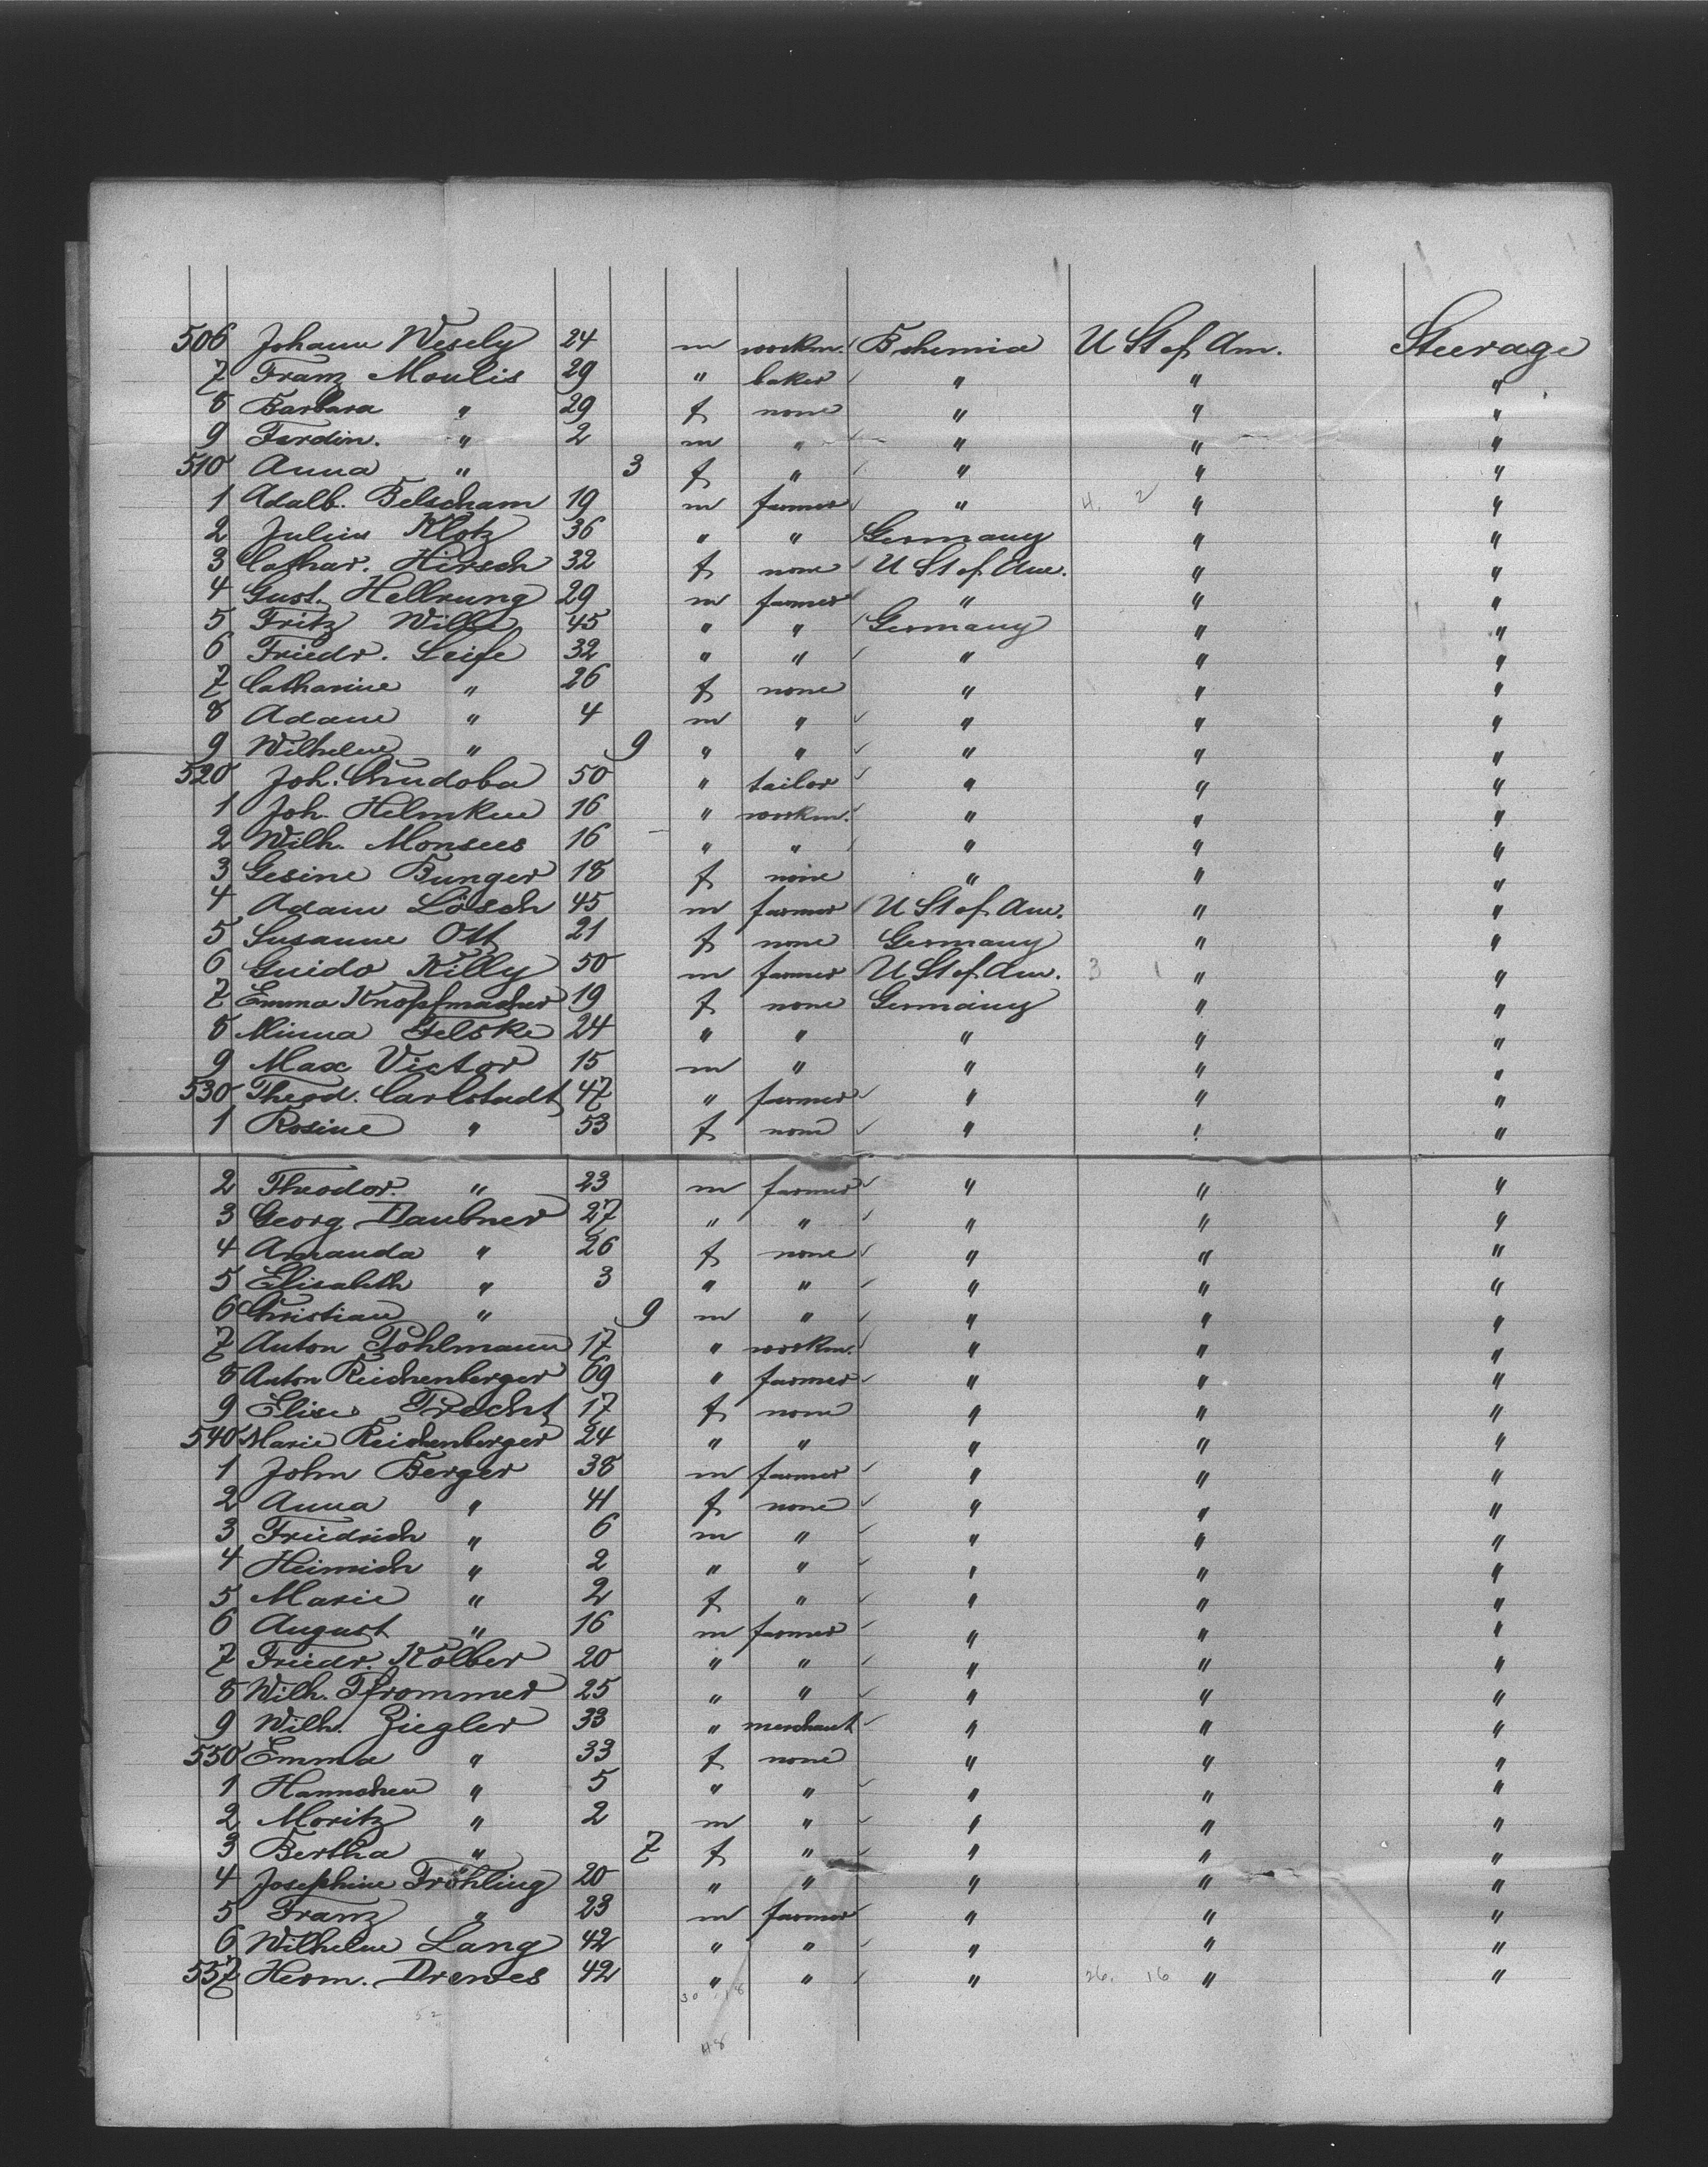 506 Johann Wesely 24 m workm. Bohemia U St of Am. Steerage
7 Franz Moulis 29 " baker " " "
8 Barbara " 29 f none " " "
9 Ferdin. " 2 m " " " "
510 Anna " 3 f " " " "
1 Adalb. Belscham 19 m farmer " 4. 2 " "
2 Julius Klotz 36 " " Germany " "
3 Cathar. Hirsch 32 f none U St of Am. " "
4 Gust. Hellrung 29 m farmer " " "
5 Fritz Wille 45 " " Germany " "
6 Friedr. Seife 32 " " " " "
7 Catharine " 26 f none " " "
8 Adam " 4 m " " " "
9 Wilhelm " 9 " " " " "
520 Joh. Chudoba 50 " tailor " " "
1 Joh. Helmken 16 " workm. " " "
2 Wilh. Monsees 16 " " " " "
3 Gesine Bunger 18 f none " " "
4 Adam Lösch 45 m farmer U St of Am. " "
5 Susanne Ott 21 f none Germany " "
6 Guido Killy 50 m farmer U St of Am. 3 1 " "
7 Emma Knopfmacher 19 f none Germany " "
8 Minna 24 " " " " "
9 Max Victor 15 m " " " "
530 Theod. Carlstadt 47 " farmer " " "
1 Rosine " 53 f none " " "
2 Theodor. " 23 m farmer " " "
3 Georg Daubner 27 " " " " "
4 Amanda " 26 f none " " "
5 Elisabeth " 3 " " " " "
6 Christian " 9 m " " " "
7 Anton Pohlmann 17 " workm. " " "
8 Anton Reichenberger 69 " farmer " " "
9 Elise Precht 17 f none " " "
540 Marie Reichenberger 24 " " " " "
1 John Berger 38 m farmer " " "
2 Anna " 41 f none " " "
3 Friedrich " 6 m " " " "
4 Heinrich " 2 " " " " "
5 Marie " 2 f " " " "
6 August " 16 m farmer " " "
7 Friedr. Kolber 20 " " " " "
8 Wilh. Pfrommer 25 " " " " "
9 Wilh. Ziegler 33 " merchant " " "
550 Emma " 33 f none " " "
1 Hannchen " 5 " " " " "
2 Moritz " 2 m " " " "
3 Bertha " 7 f " " " "
4 Josephine Fröhling 20 " " " " "
5 Franz " 23 m farmer " " "
6 Wilhelm Lang 42 " " " " "
557 Herm. Drewes 42 " " " 26. 16 " "
30 18
52
48